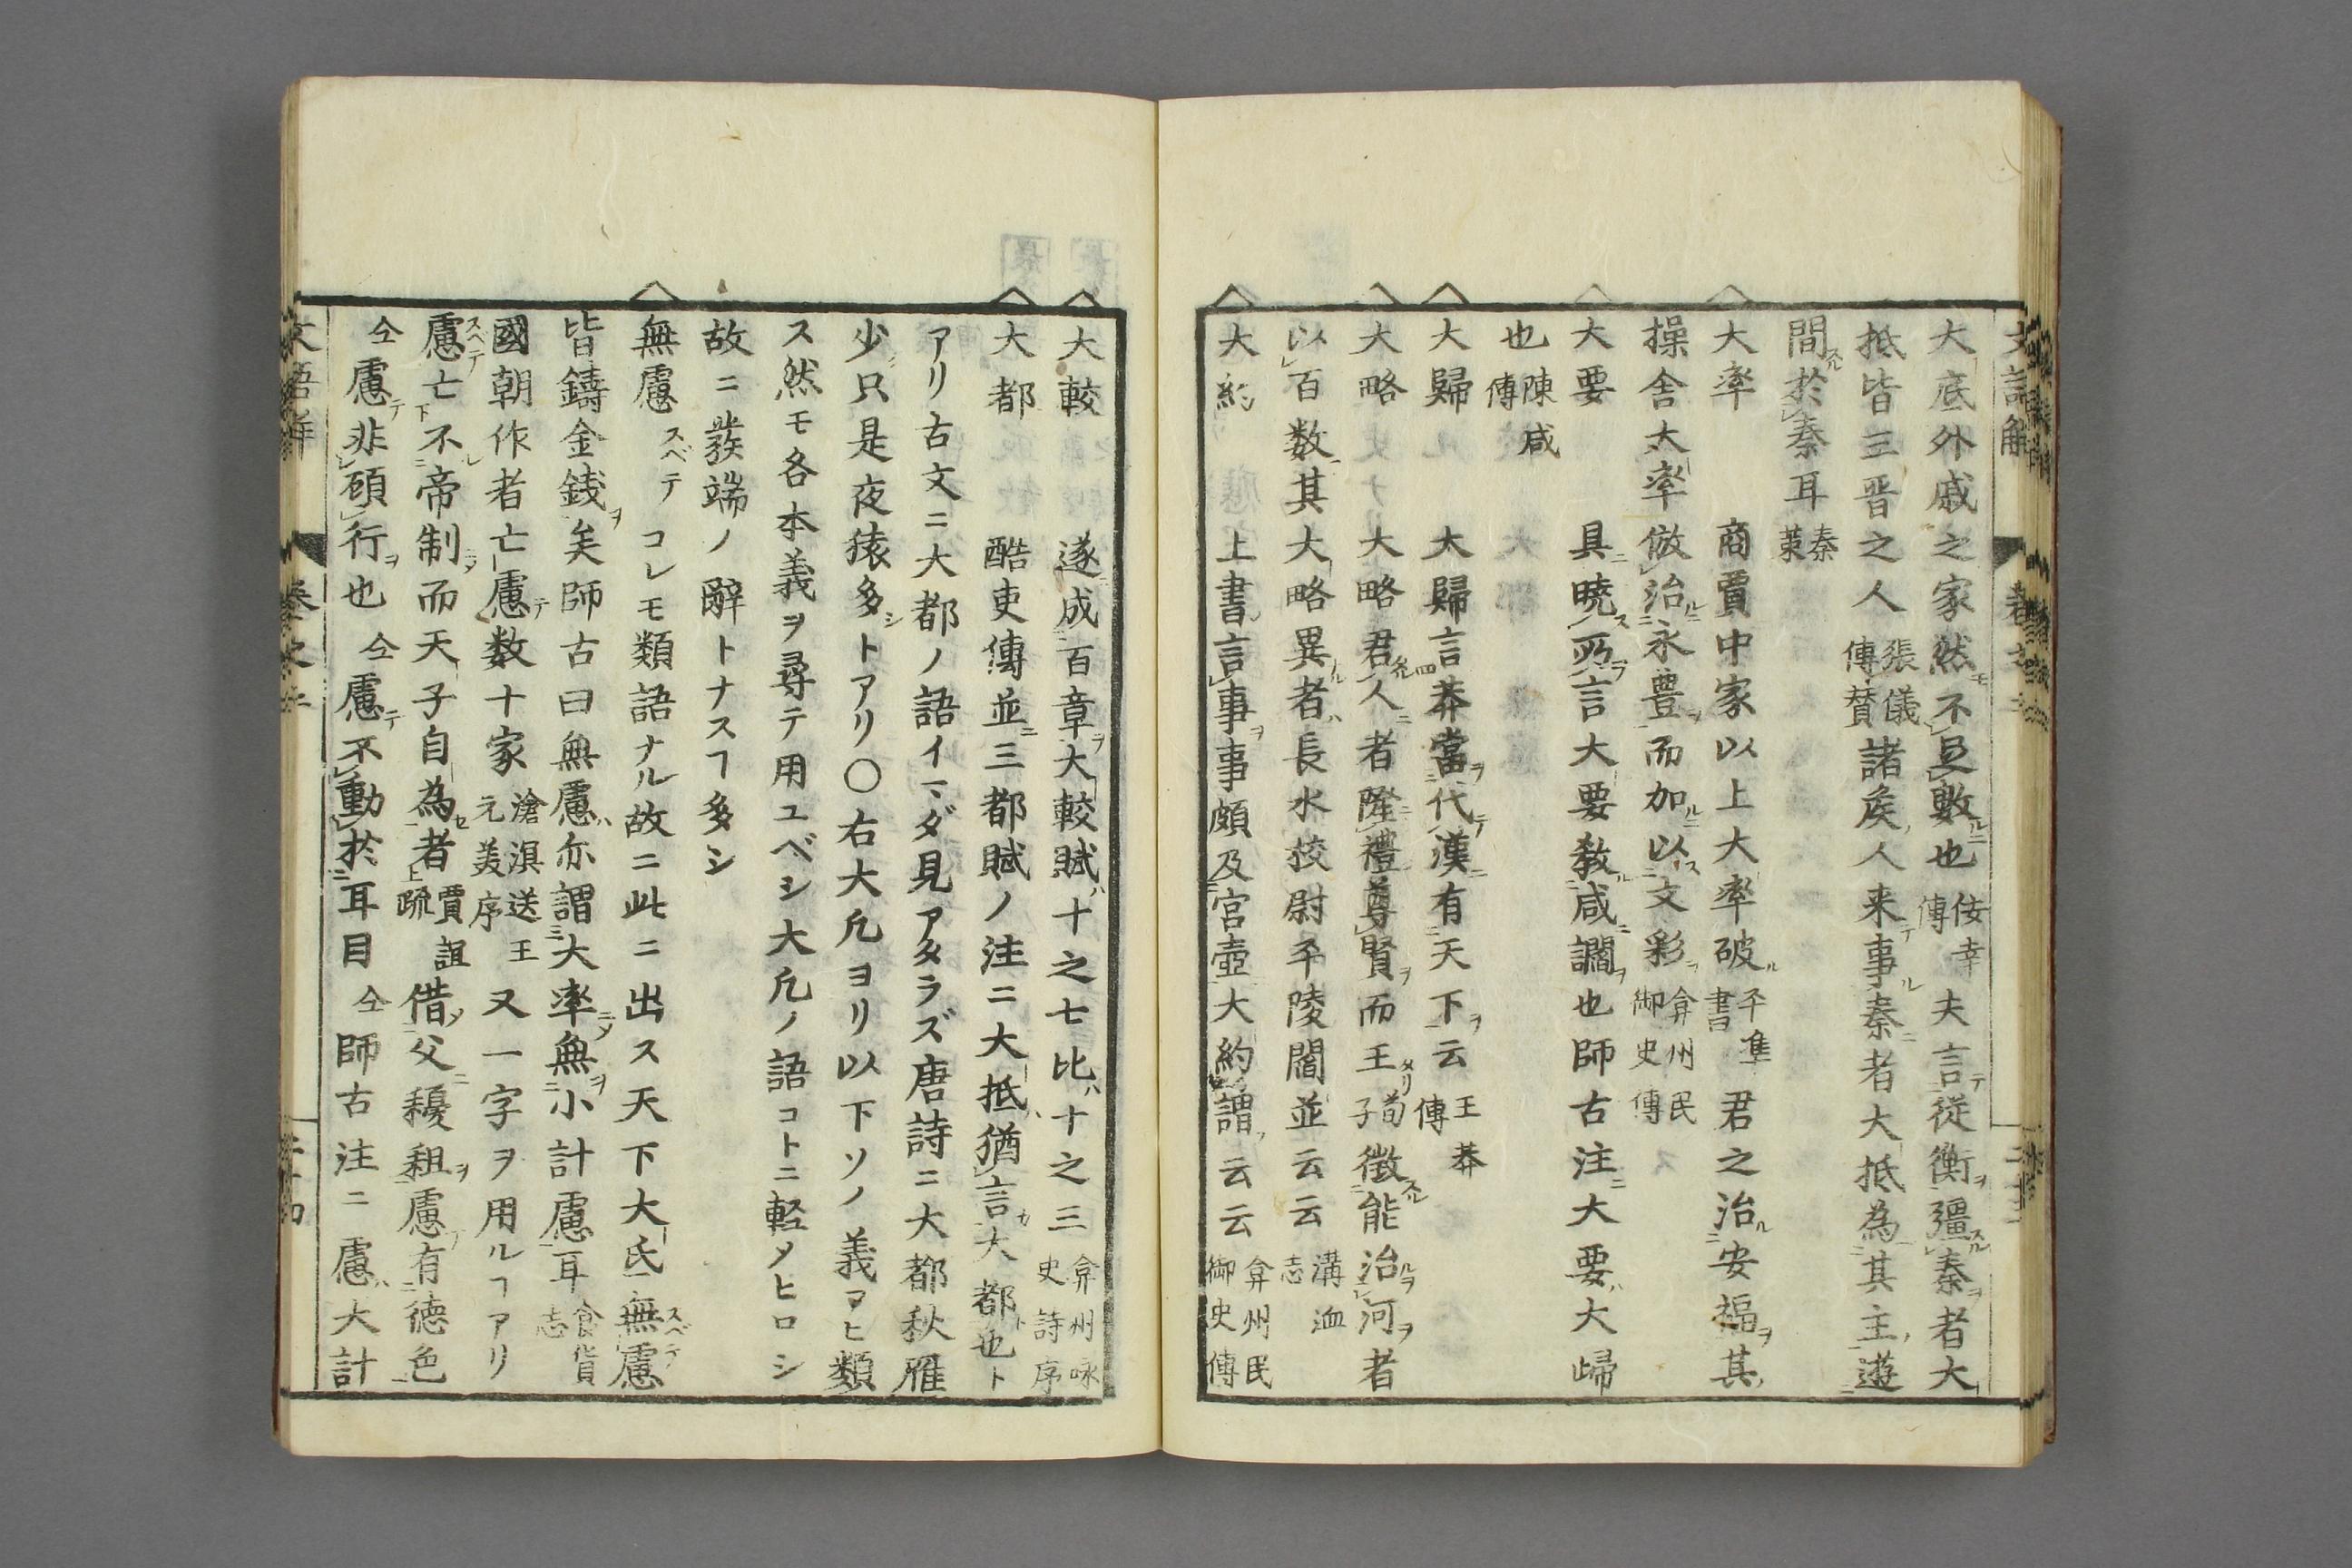 大底外戚之家然不足數也佞幸傳夫言從衡彊秦者大
抵皆三晋之人張儀傳賛諸矦人来事秦者大抵為其主遊
間於秦耳秦策
大率　商賈中家以上大率破平準書君之治安福其
操舍大率倣治永豊而加以文彩弇州民御史傳
大要　具曉所言大要教咸讇也師古注大要大歸
也陳咸傳
大歸　大歸言莽當代漢有天下云王莽傳
大略　大略君人者隆禮尊賢而王荀子徴能治河者
以百数其大略異者長水校尉平陵關並云云溝洫志
大約　上書言事事頗及宮壺大約謂云云弇州民御史傳
大較　遂成百章大較賦十之七比十之三弇州咏史詩序
大都　酷吏傳並三都賦ノ注ニ大抵猶言大都也ト
アリ古文ニ大都ノ語イマダ見アタラズ唐詩ニ大都秋雁
少只是夜猿多トアリ〇右大凡ヨリ以下ソノ義アヒ類
ス然モ各本義ヲ尋テ用ユベシ大凡ノ語コトニ軽メヒロシ
故ニ發端ノ辭トナスヿ多シ
無慮スベテ　コレモ類語ナル故ニ此ニ出ス天下大氐無慮
皆鑄金銭矣師古曰無慮亦謂大率無小計慮耳食貨志
國朝作者亡慮数十家滄溟送王元美序又一字ヲ用ルヿアリ
慮亡不帝制而天子自為者賈誼上疏借父耰耡慮有徳色
仝慮非顧行也仝慮不動於耳目仝師古注ニ慮大計